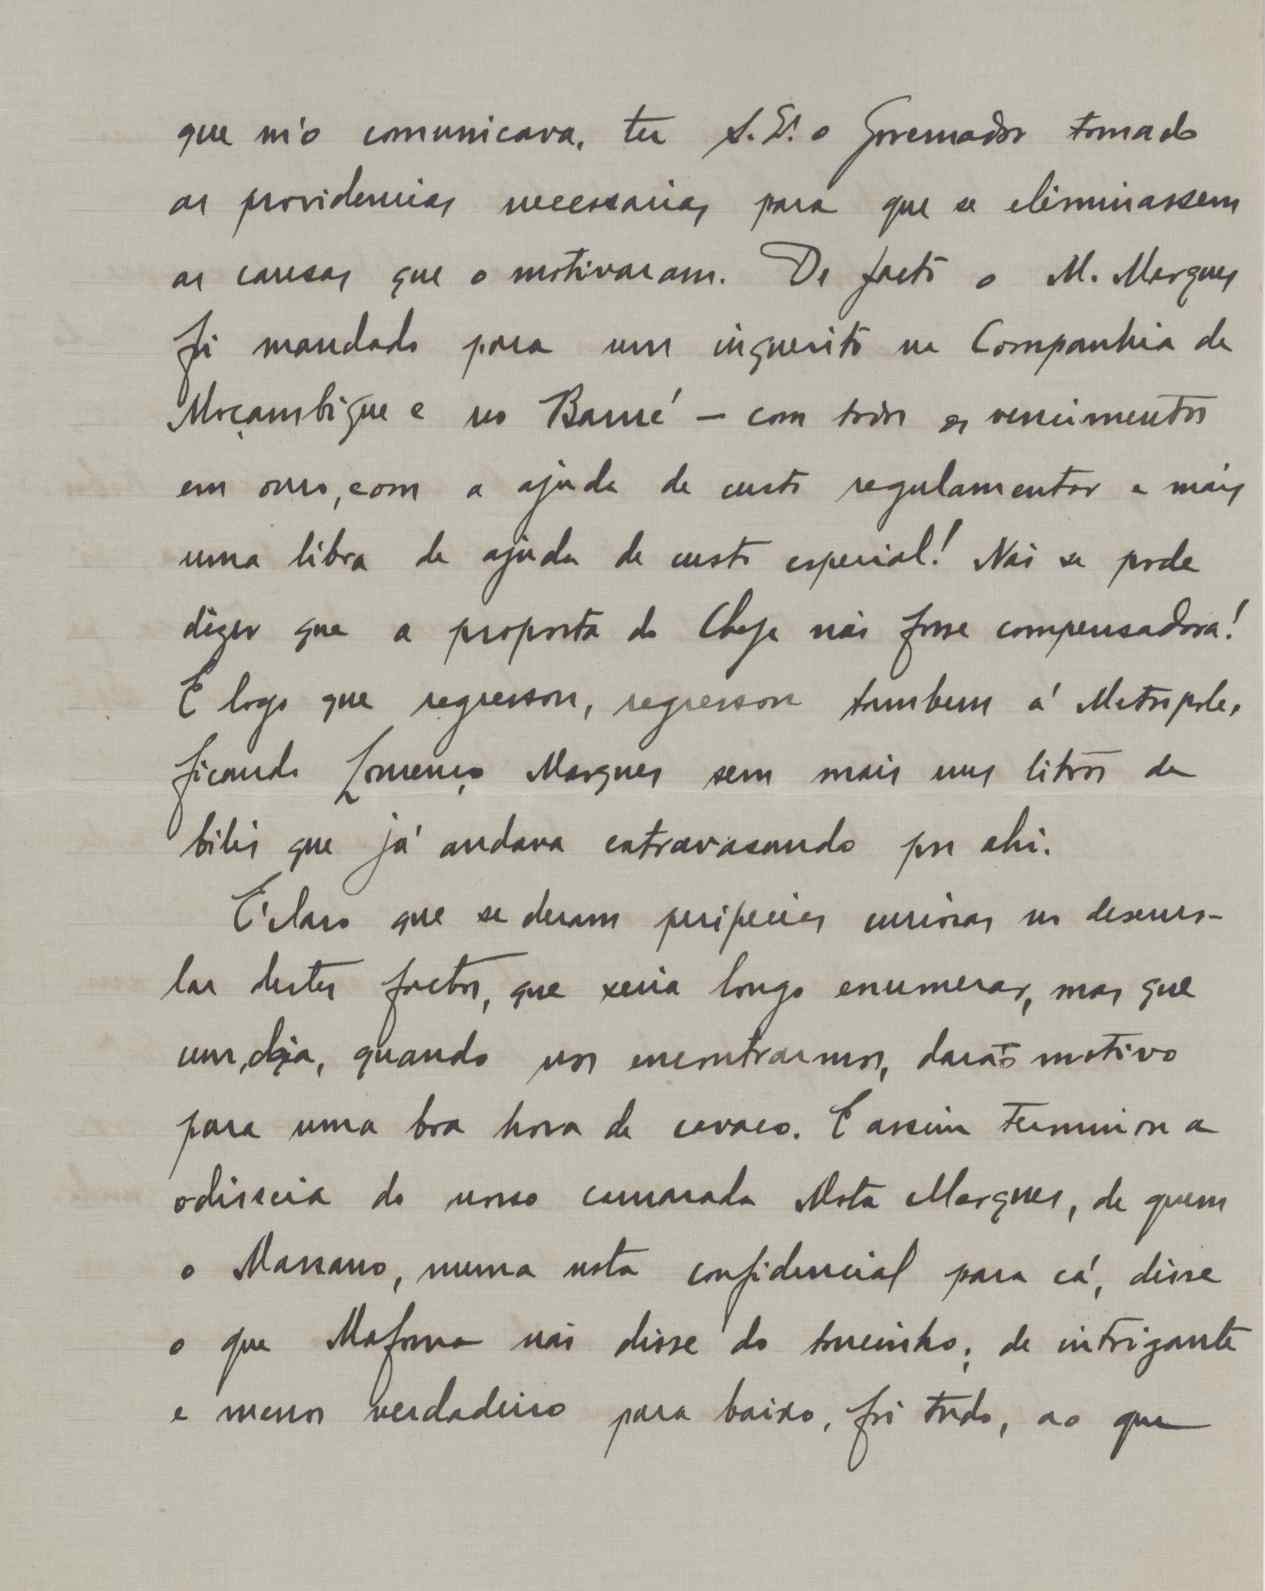 que m'o comunicava, ter S. Ex.ª o Governador tomado
as providencias necessarias para que se eliminassem
as causas que o motivaram. De facto o M. Marques
foi mandado para um inquerito na Companhia de
Moçambique e no Barué — com todos os vencimentos
em ouro, com a ajuda de custo regulamentar e mais
uma libra de ajuda de custo especial! Não se pode
dizer que a proposta do Chefe não fosse compensadora!
E logo que regressou, regressou tambem á Metropole,
ficando Lourenço Marques sem mais uns litros de
bilis que já andava extravasando por ahi.
É claro que se deram peripecias curiosas no desenro-
lar destes factos, que seria longo enumerar, mas que
um dia, quando nos encontrarmos, darão motivo
para uma boa hora de cavaco. E assim terminou a
odisseia do nosso camarada Mota Marques, de quem
o Massano, numa nota confidencial para cá, disse
o que Mafoma não disse do toucinho; de intrigante
e menos verdadeiro para baixo, foi tudo, ao que